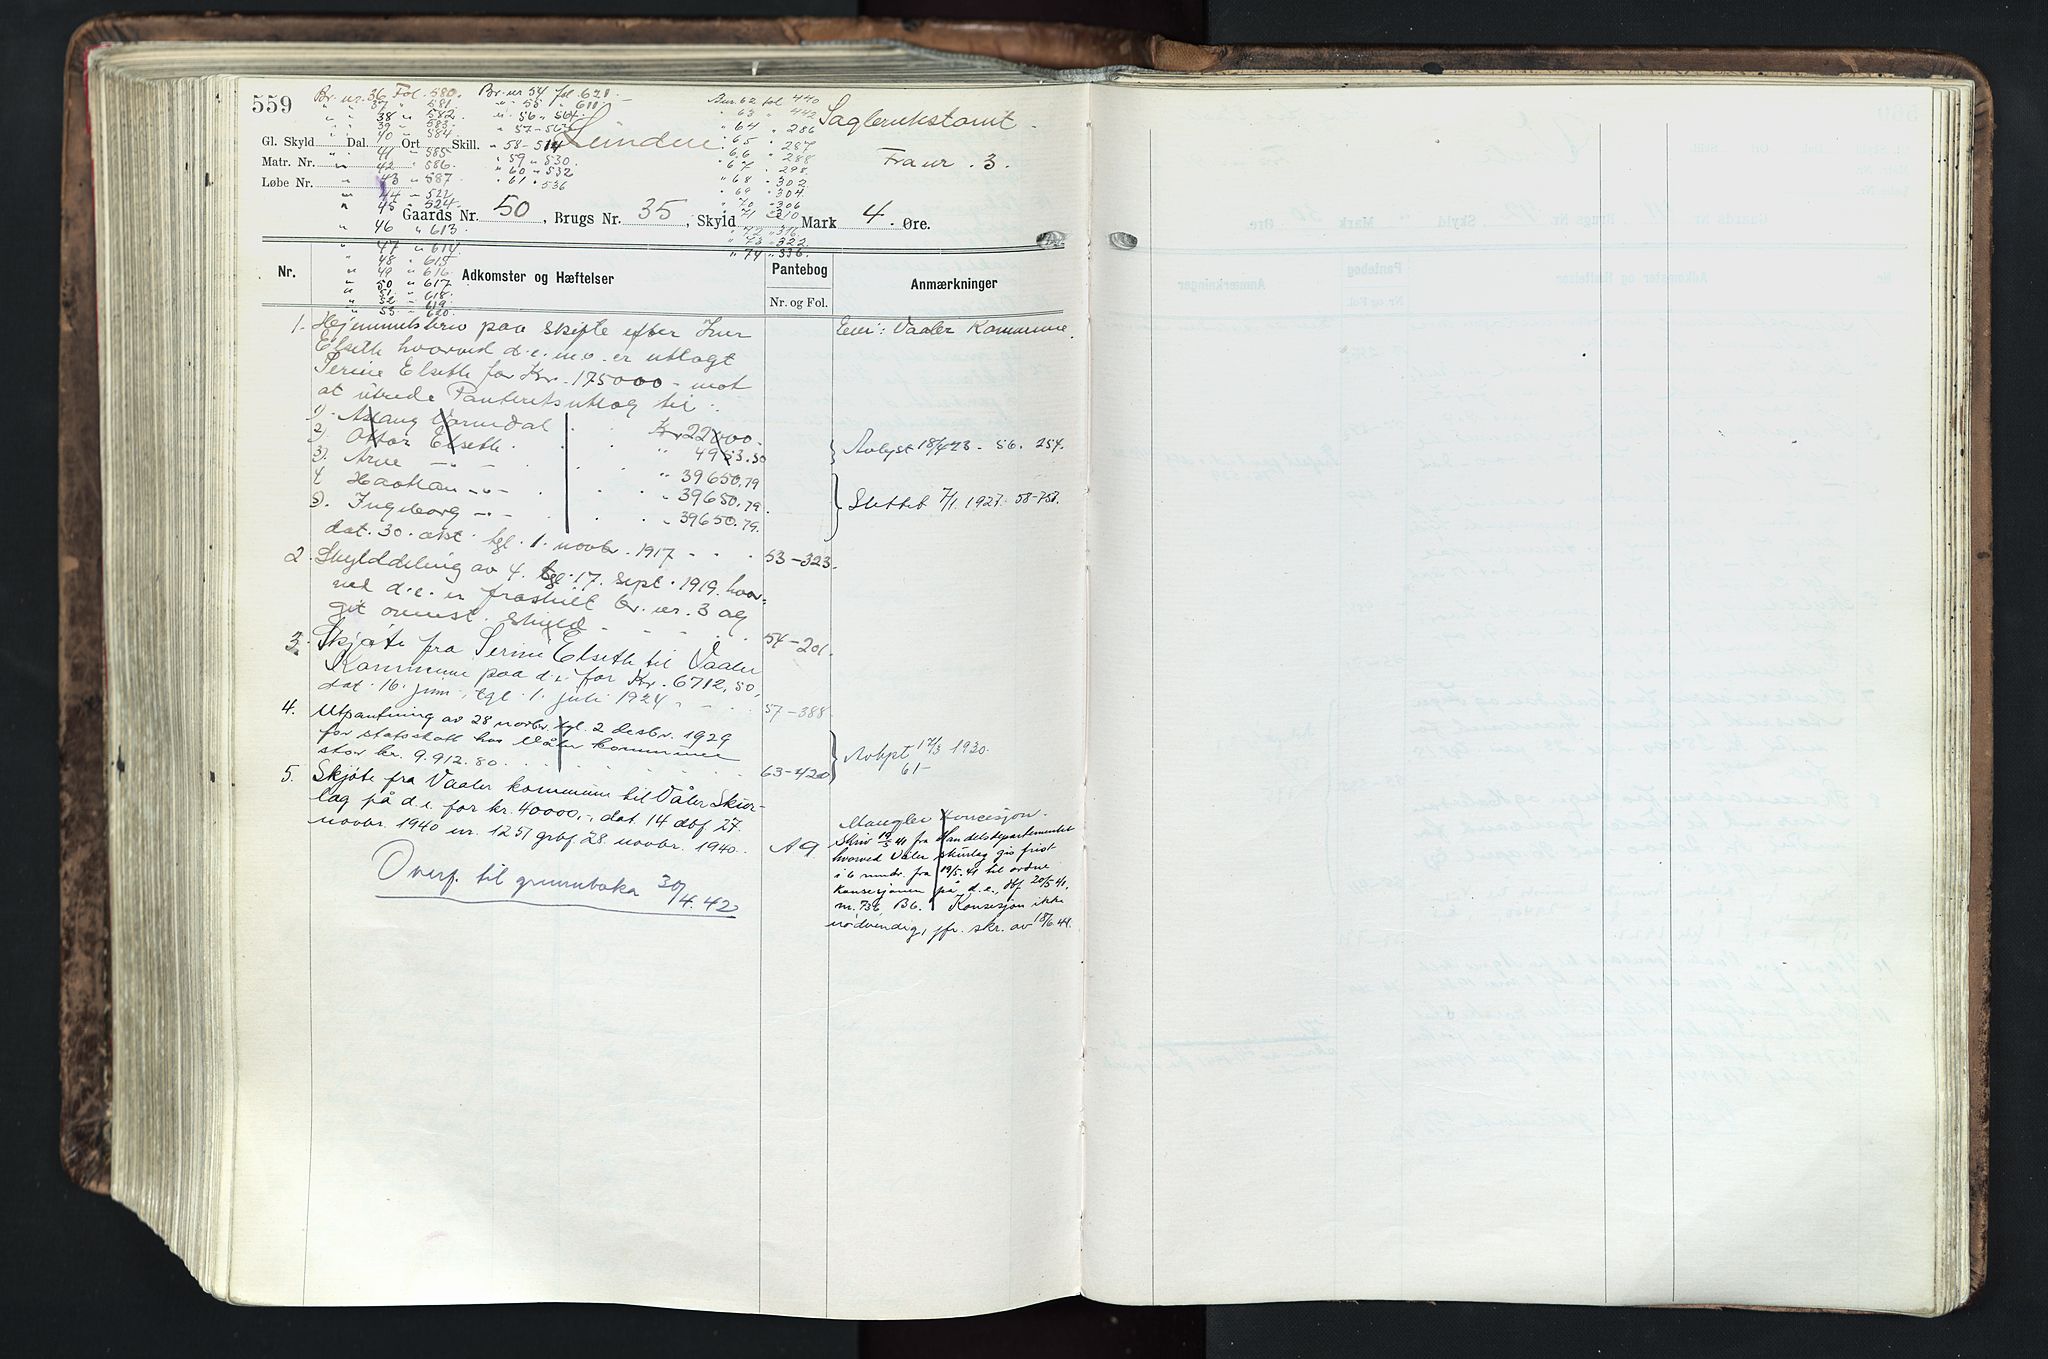 559
Br. nr. 36 Fol. 580.
" " 37 " 581.
" " 38 " 582.
" " 39 " 583.
" " 40 " 584.
" 41 " 585
" 42 " 586.
" 43 " 587
" 44 " 522
" 45 " 524.
" 46 " 613.
" 47 " 614
" 48 " 615
" 49 " 616
" 50 " 617
" 51 " 618.
" 52 " 619.
" 53 " 620.
Br. nr 54 fol. 621.
" 55 " 611
" 56 " 567
" 57 -
" 58 - 514
" 59 " 530
" 60 " 532
" 61 " 536
Bnr. 62 fol 440
" 63 " 442
" 64 " 286
" 65 " 287
" 66 " 288
" 67 " 298.
" 68 " 302
" 69 " 304.
" 70 " 306
" 71 " 310
" 72 " 316
" 73 " 322
" 74 " 336
Saglbrukstomt
Fra nr. 3.
Gl. Skyld Dal. Ort Skill.
Matr. Nr.
Løbe Nr.
Gaards Nr. 50, Brugs Nr. 35, Skyld Mark 4. Øre.
Nr. Adkomster og Hæftelser Pantebog Anmærkninger
Nr. og Fol.
1. Hjemmelsbrev paa skifte efter Iver
Elseth hvorved d. e. m. o. er utlagt
Serine Elseth for Kr. 175000 - mot
at utrede Panteretsutlæg til:
1) Aslaug Kr 22000.
2) Ottar Elseth. " 4953.50
3) Arne — " — " 39650.79
4) Haakan — " — " 39650.79.
5). Ingeborg — " — " 39650.79.
dat. 30. okt. tgl. 1. novbr. 1917 - - - 53-323.
2. Skylddeling av 4. tgl. 17. sept. 1919. hvor=
ved d. e. er fraskilt br. nr. 3 og
git ovenst. skyld - - - 54-201.
3. Skjøte fra Serine Elseth til Vaaler
Kommune paa d. e. for Kr. 6712,50,
dat. 16. juni, tgl. 1. juli 1924 - - - 57-388
4. Utpantning av 28 novbr. tgl. 2 desbr. 1929
for statsskatt hos Våler kommune
stor kr. 9.912.80. 63-420
5. Skjøte fra Vaaler kommune til Våler Skur-
lag på d. e. for kr. 40000,-, dat 14 dbf. 27.
novbr. 1940 nr. 1251 grbf. 28. novbr. 1940. A 9.
Overf. til grunnboka 30/4.42
Eier: Vaaler Kommune.
Avlyst 18/4 23 - 56. 254.
Slettet 7/1. 1927. 58-757.
Avlyst 17/3 1930.
61-
Mangler koncesjon.
Skriv 19/5 41 fra Handelsdepartementet
hvorved Våler skurlag gis frist
i 6 mndr. fra 19/5. 41 til ordne
konsesjonen på d. e., dbf 20/5 41,
nr. 736, B6. Konsesjon ikke
nødvendig, jfr. skr. av 18/6 41.